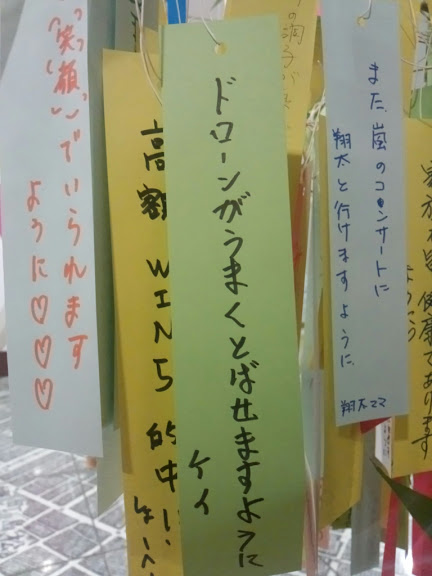 健康であります
また、嵐のコンサートに
翔太と行けますように。
翔太ママ
の調子が
ドローンがうまくとばせますように
ケイ
高額 WIN5 的中!!
"笑顔"でいられます
ように♡♡♡